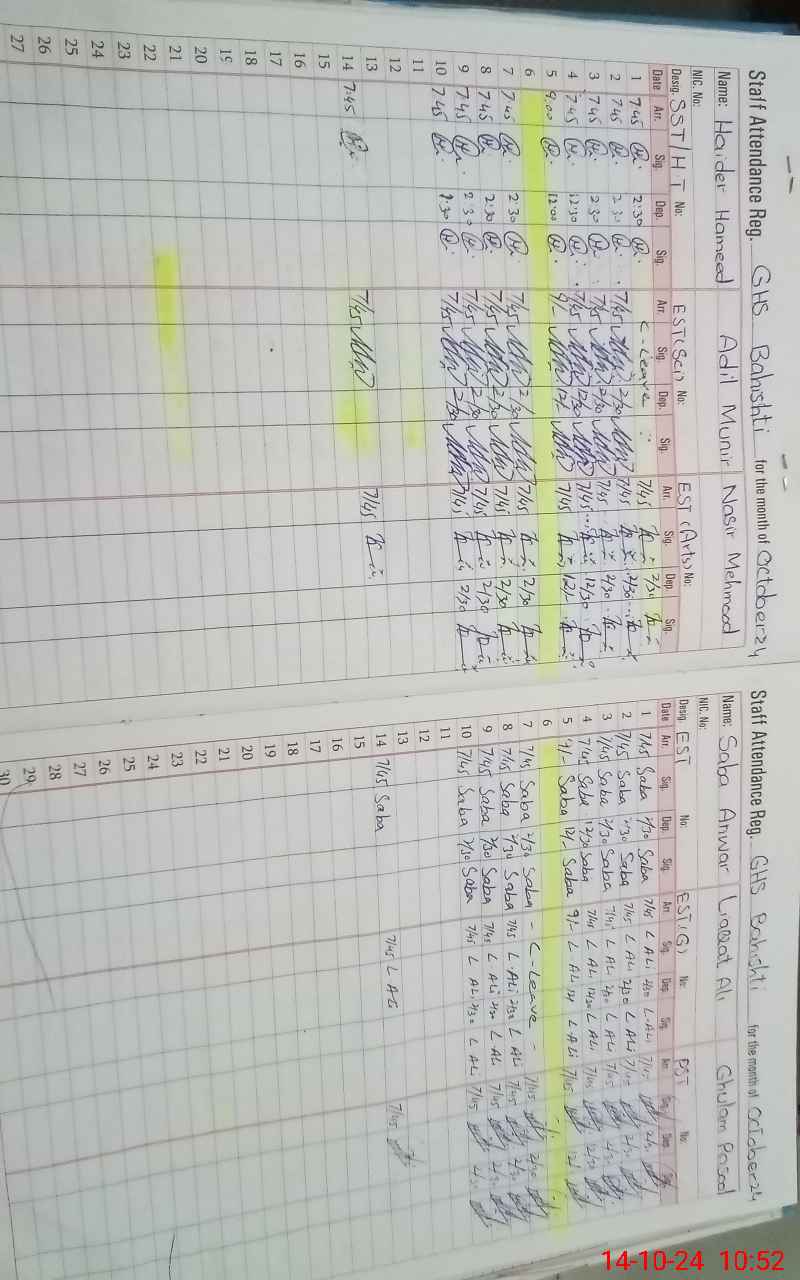 Staff Attendance Reg. GHS Bahishti for the month of October 24
Name: Haider Hameed Adil Munir Nasir Mehmood
NIC. No:
Desig. SST/H.T No: EST(Sci) No: EST(Arts) No:
Date Arr. Sig. Dep. Sig. Arr. Sig. Dep. Sig. Arr. Sig. Dep. Sig.
1 7 45 2:30 C-Leave 7/45 2/30
2 7 45 2 30 7/45 2/30 7/45 2/30
3 7 45 2 30 7/45 2/30 7/45 2/30
4 7 45 12:30 7/45 12/30 7/45 12/30
5 9.00 12:00 9/- 12/- 7/45 12/-
6
7 7 45 2:30 7/45 2/30 7/45 2/30
8 7 45 2:30 7/45 2/30 7/45 2/30
9 7 45 2 30 7/45 2/30 7/45 2/30
10 7 45 2:30 7/45 2/30 7/45 2/30
11
12
13
14 7:45 7/45 7/45
15
16
17
18
19
20
21
22
23
24
25
26
27
Staff Attendance Reg. GHS Bahishti for the month of October 24
Name: Saba Anwar Liaqat Ali Ghulam Rasool
NIC. No:
Desig. EST No: EST(G) No: PST No:
Date Arr. Sig. Dep. Sig. Arr. Sig. Dep. Sig. Arr. Sig. Dep. Sig.
1 7/45 Saba 2/30 Saba 7/45 L ALi 2/30 L ALi 7/45 2/30
2 7/45 Saba 2/30 Saba 7/45 L ALi 2/30 L ALi 7/45 2/30
3 7/45 Saba 2/30 Saba 7/45 L ALi 2/30 L ALi 7/45 2/30
4 7/45 Saba 12/30 Saba 7/45 L ALi 12/30 L ALi 7/45 12/30
5 9/- Saba 12/- Saba 9/- L ALi 12/ L ALi 7/45 12/
6
7 7/45 Saba 2/30 Saba - C-Leave - 7/45 2/30
8 7/45 Saba 2/30 Saba 7/45 L ALi 2/30 L ALi 7/45 2/30
9 7/45 Saba 2/30 Saba 7/45 L ALi 2/30 L ALi 7/45 2/30
10 7/45 Saba 2/30 Saba 7/45 L ALi 2/30 L ALi 7/45 2/30
11
12
13
14 7/45 Saba 7/45 L ALi 7/45
15
16
17
18
19
20
21
22
23
24
25
26
27
28
29
30
14-10-24 10:52